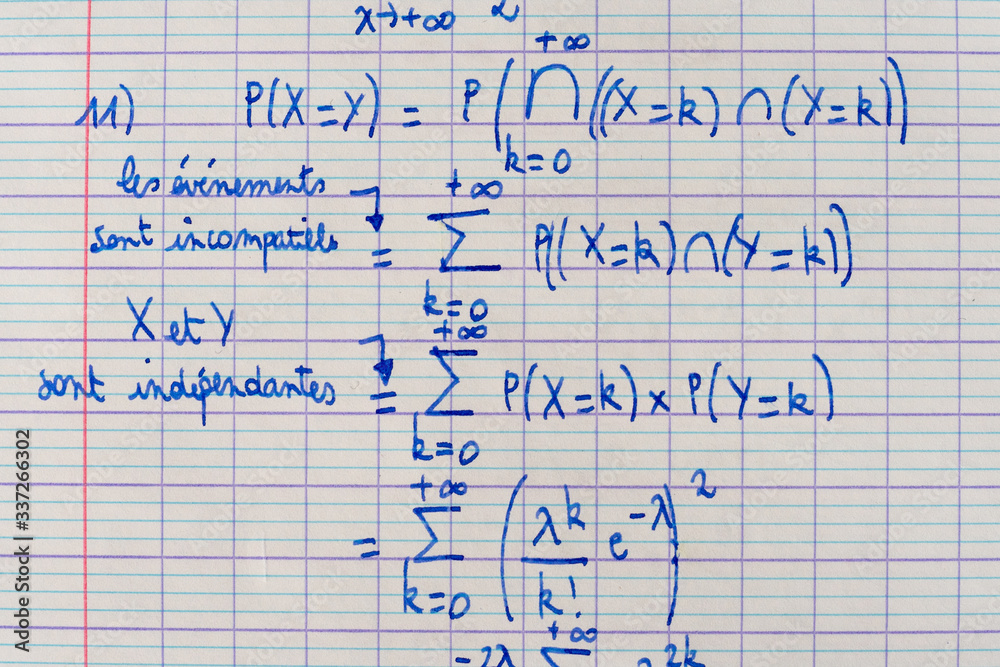 x→+∞ 2
11) P(X=Y) = P(⋂_{k=0}^{+∞}((X=k)∩(Y=k)))
les événements
sont incompatibles = ∑_{k=0}^{+∞} P((X=k)∩(Y=k))
X et Y
sont indépendantes = ∑_{k=0}^{+∞} P(X=k)×P(Y=k)
= ∑_{k=0}^{+∞} (λ^k/k! e^{-λ})^2
-2λ +∞ 2k
Adobe Stock | #337266302